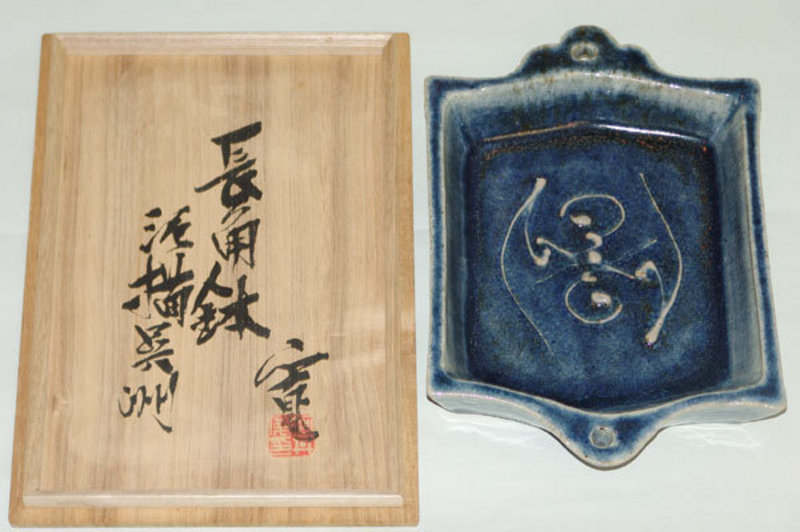 長角鉢
泥描呉洲